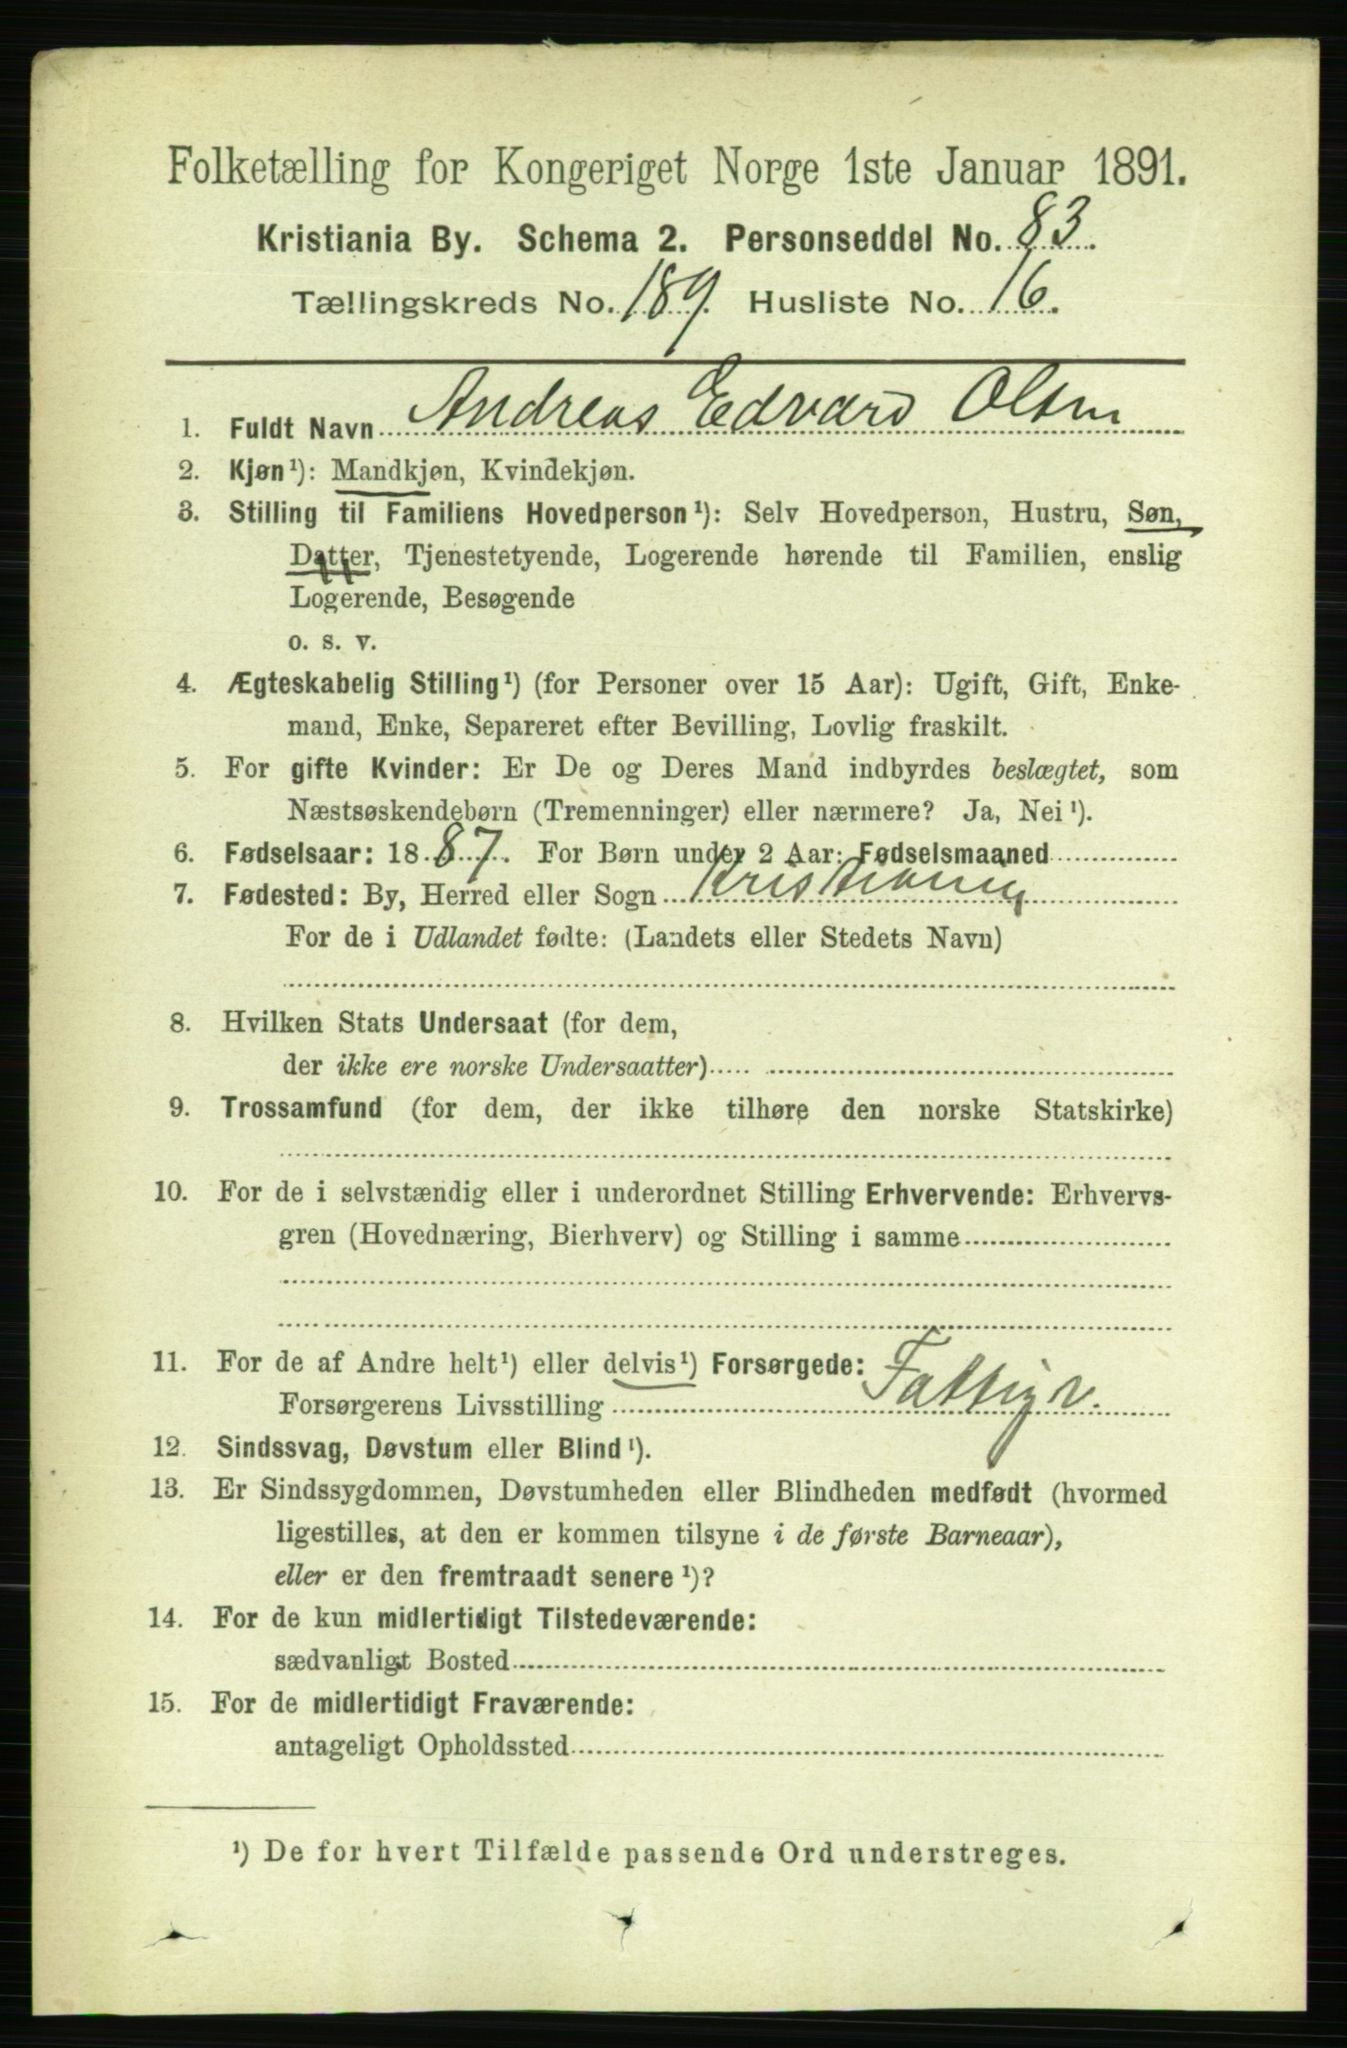 Folketælling for Kongeriget Norge 1ste Januar 1891.
Kristiania By. Schema 2. Personseddel No. 83.
Tællingskreds No. 189. Husliste No. 16.
1. Fuldt Navn Andreas Edvard Olsen
2. Kjøn¹): Mandkjøn, Kvindekjøn.
3. Stilling til Familiens Hovedperson¹): Selv Hovedperson, Hustru, Søn,
Datter, Tjenestetyende, Logerende hørende til Familien, enslig
Logerende, Besøgende
o. s. v.
4. Ægteskabelig Stilling¹) (for Personer over 15 Aar): Ugift, Gift, Enke-
mand, Enke, Separeret efter Bevilling, Lovlig fraskilt.
5. For gifte Kvinder: Er De og Deres Mand indbyrdes beslægtet, som
Næstsøskendebørn (Tremenninger) eller nærmere? Ja, Nei¹).
6. Fødselsaar: 1887. For Børn under 2 Aar: Fødselsmaaned
7. Fødested: By, Herred eller Sogn Kristiania
For de i Udlandet fødte: (Landets eller Stedets Navn)
8. Hvilken Stats Undersaat (for dem,
der ikke ere norske Undersaatter)
9. Trossamfund (for dem, der ikke tilhøre den norske Statskirke)
10. For de i selvstændig eller i underordnet Stilling Erhvervende: Erhvervs-
gren (Hovednæring, Bierhverv) og Stilling i samme
11. For de af Andre helt¹) eller delvis¹) Forsørgede:
Forsørgerens Livsstilling Fattigv.
12. Sindssvag, Døvstum eller Blind¹).
13. Er Sindssygdommen, Døvstumheden eller Blindheden medfødt (hvormed
ligestilles, at den er kommen tilsyne i de første Barneaar),
eller er den fremtraadt senere¹)?
14. For de kun midlertidigt Tilstedeværende:
sædvanligt Bosted
15. For de midlertidigt Fraværende:
antageligt Opholdssted
¹) De for hvert Tilfælde passende Ord understreges.